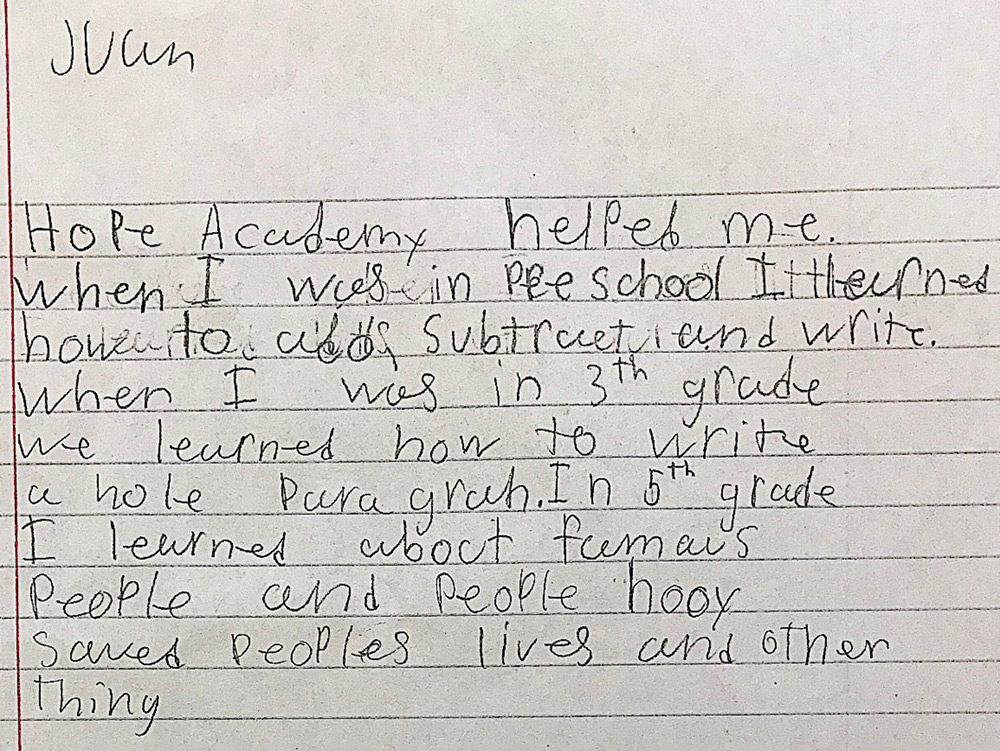 Juan
Hope Academy helped me.
when I was in Preschool I learned
how to add, Subtract, and write.
when I was in 3th grade
we learned how to write
a hole Paragrah. In 5th grade
I learned about famaus
People and People hooy
saved peoples lives and other
thing